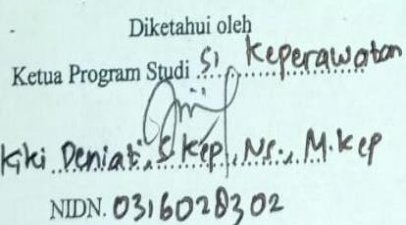 Diketahui oleh
Ketua Program Studi S1 Keperawatan
Kiki Deniati, S.Kep., Ns., M.Kep
NIDN. 0316028302